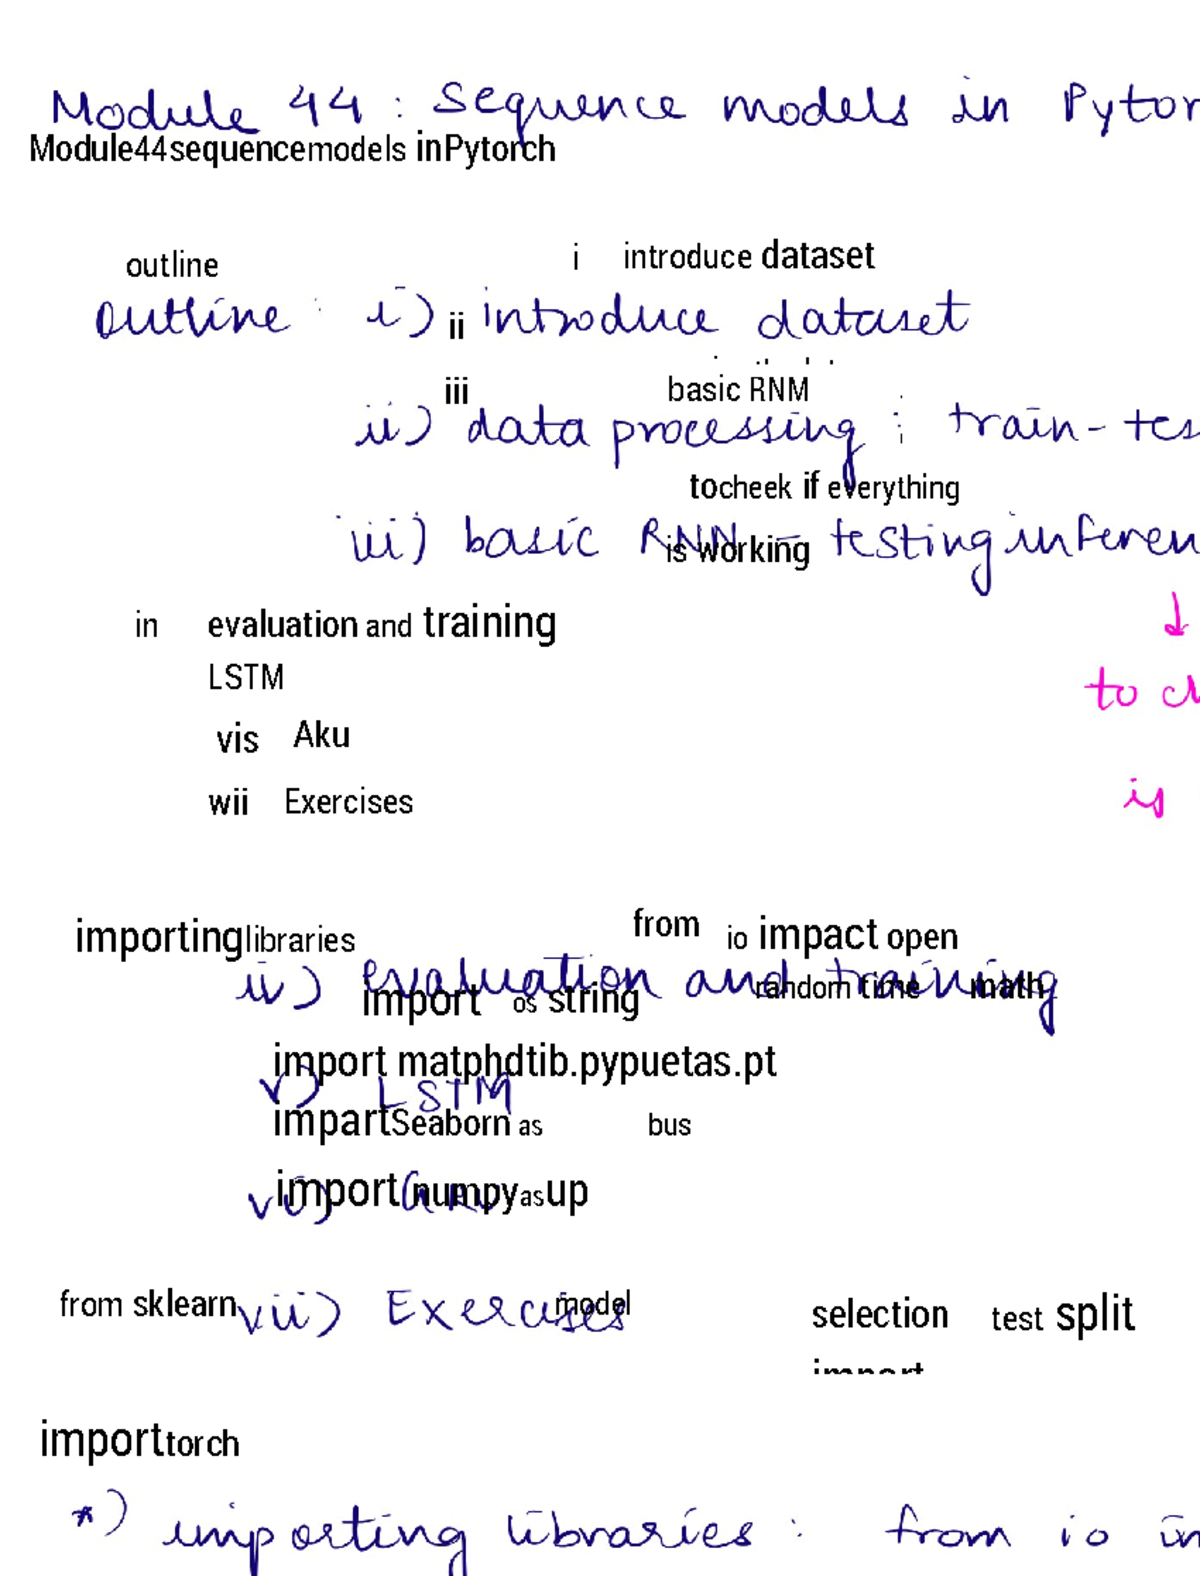 Module 44 : Sequence models in Pytor
Module44sequencemodels inPytorch
outline i introduce dataset
outline : i) introduce dataset
ii
iii basic RNM
ii) data processing : train-tes
tocheek if everything
iii) basic RNN - testing inferen
is working
in evaluation and training
↓
LSTM
to ch
vis Aku
wii Exercises
is
importinglibraries from io impact open
iv) evaluation and training
import os string random time math
import matphdtib.pypuetas.pt
v) LSTM
impartSeaborn as bus
vi)
import numpyasup
from sklearn model selection test split
vii) Exercises
import
importtorch
*) importing libraries : from io im